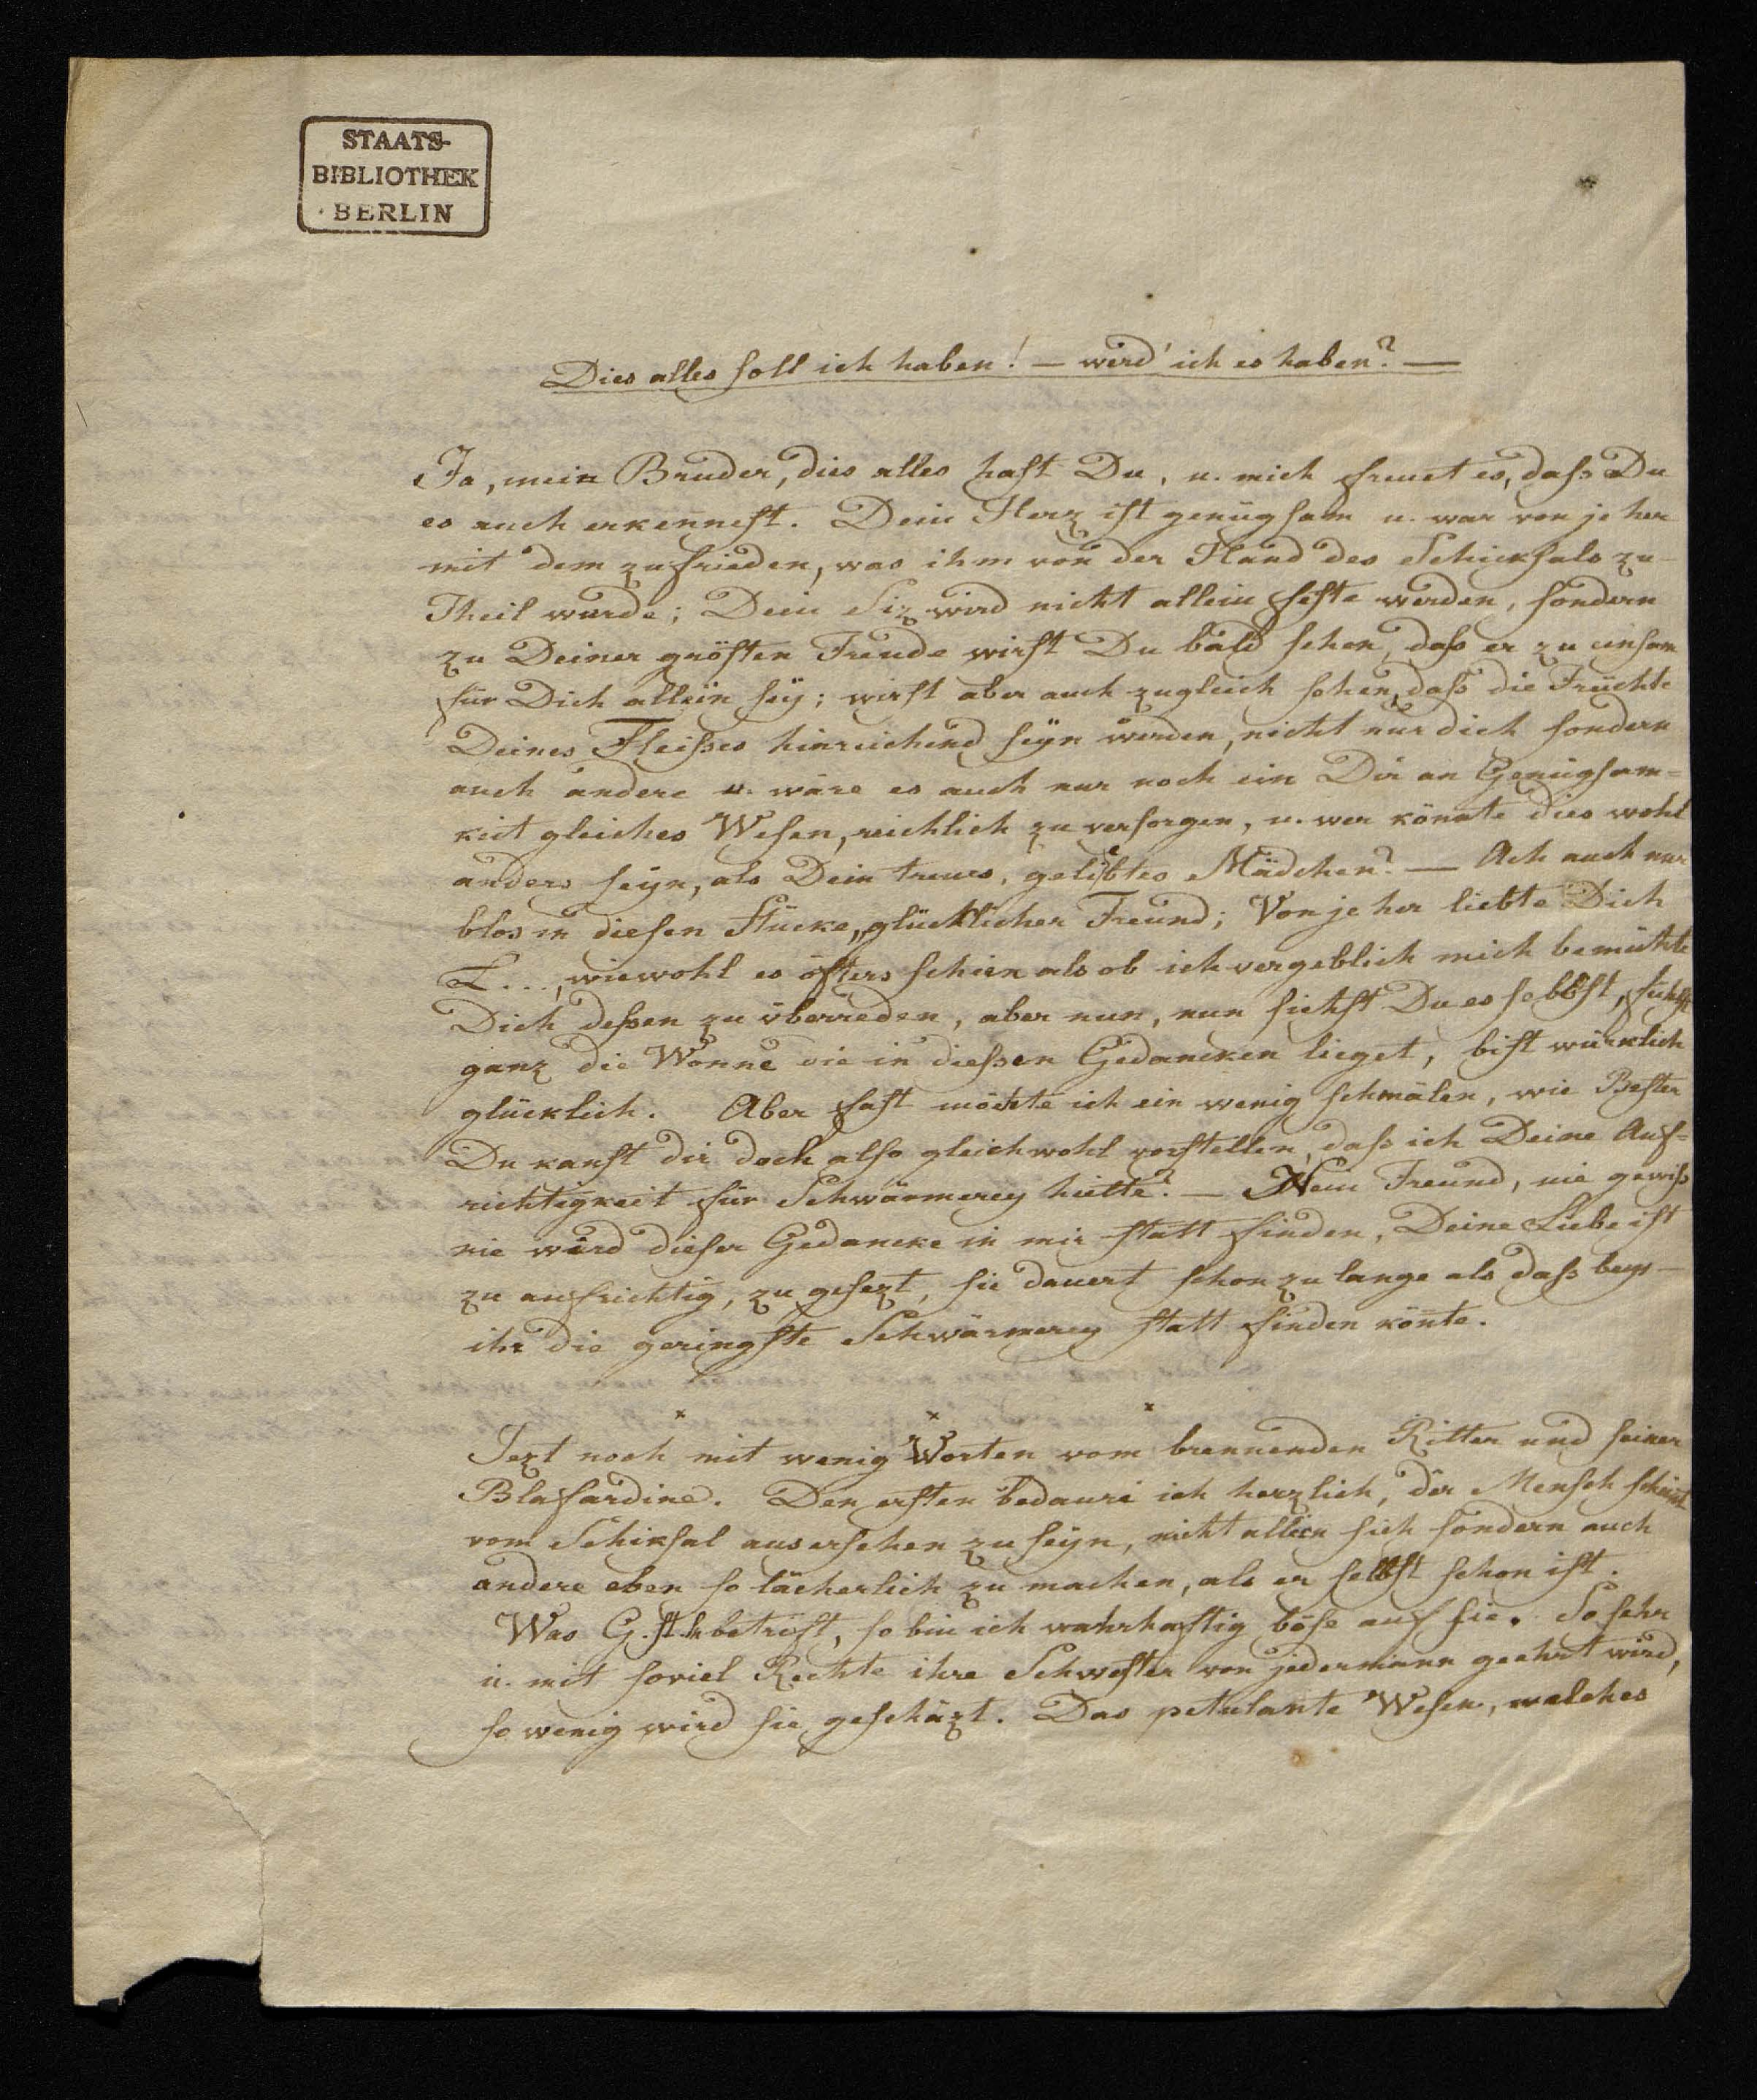 STAATS-
BIBLIOTHEK
BERLIN
Dies alles soll ich haben! — werd' ich es haben? —
Ja, mein Bruder, dies alles hast Du, u. mich freuet es, dass Du
es auch erkennest. Dein Herz ist genügsam u. war von je her
mit dem zufrieden, was ihm von der Hand des Schicksals zu-
Theil wurde; Dein Siz wird nicht allein feste werden, sondern
zu Deiner grösten Freude wirst Du bald sehen, dass er zu einsam
für Dich allein sey; wirst aber auch zugleich sehen, dass die Früchte
Deines Fleisses hinreichend seyn werden, nicht nur dich sondern
auch andere u. wäre es auch nur noch ein Dir an Genügsam=
keit gleiches Wesen, reichlich zu versorgen, u. wer könnte dies wohl
anders seyn, als Dein treues, geliebtes Mädchen? — Ach auch nur
blos in diesen Stücke, glücklicher Freund; Von je her liebte Dich
L..., wiewohl es öfters schien als ob ich vergeblich mich bemühte
Dich dessen zu überreden, aber nun, nun siehst Du es selbst, fühlst
ganz die Wonne die in diessen Gedancken lieget, bist würklich
glücklich. Aber fast möchte ich ein wenig schmälen, wie Bester
Du kanst dir doch also gleichwohl vorstellen, dass ich Deine Auf=
richtigkeit für Schwärmerey hielte? — Nein Freund, nie gewiss
nie wird dieser Gedancke in mir statt finden, Deine Liebe ist
zu aufrichtig, zu gesezt, sie dauert schon zu lange als dass bey-
ihr die geringste Schwärmerey statt finden könte.
x x x
Jezt noch mit wenig Worten vom brennenden Ritter und seiner
Blafardine. Den ersten bedaure ich herzlich, der Mensch scheint
vom Schiksal ausersehen zu seyn, nicht allein sich sondern auch
andere eben so lächerlich zu machen, als er selbst schon ist.
Was G. betrift, so bin ich wahrhaftig böse auf sie. So sehr
u. mit soviel Rechte ihre Schwester von jedermann geehrt wird,
so wenig wird sie geschäzt. Das petulante Wesen, welches